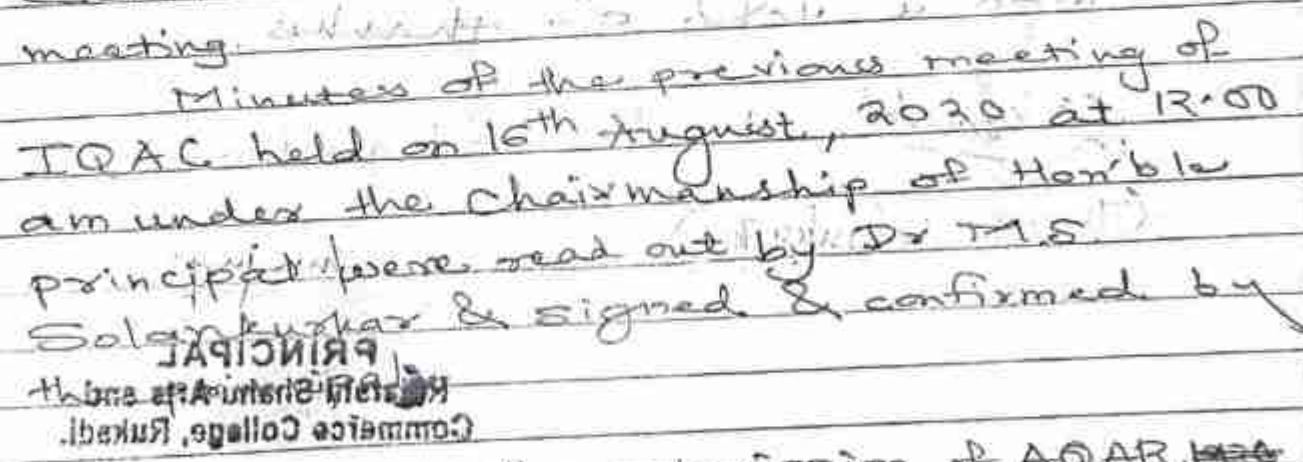 meeting.
Minutes of the previous meeting of
IQAC held on 16th August, 2020 at 12.00
am under the Chairmanship of Hon'ble
principal were read out by Dr M.S.
Solankurkar & signed & confirmed by
PRINCIPAL
Rajarshi Shahu Arts and
Commerce College, Rukadi.
of AQAR